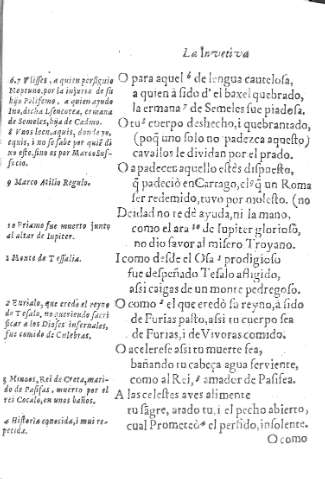 La Invetiva
6.7 Vlisses, a quien persiguio
Neptuno, por la injuria de su
hijo Polifemo, a quien ayudo
Ino, dicha Leucotea, ermana
de Semeles, hija de Cadmo.
8 Vnos leen, aquis, donde yo,
equis, i no se sabe por quiẽ di
no este, sino es por Marco Suf-
fecio.
9 Marco Atilio Regulo.
10 Priamo fue muerto junto
al altar de Iupiter.
1 Monte de Tessalia.
2 Eurialo, que eredò el reyno
de Tesalo, no queriendo sacri
ficar a los Dioses infernales,
fue comido de Culebras.
3 Minoes, Rei de Creta, mari-
do de Pasifas, muerto por el
rei Cocalo, en unos baños.
4 Historia conocida, i mui re-
petida.
O para aquel 6 de lengua cautelosa,
a quien à sido d' el baxel quebrado,
la ermana 7 de Semeles fue piadosa.
O tu 8 cuerpo deshecho, i quebrantado,
(poq̃ uno solo no padezca aquesto)
cavallos le dividan por el prado.
O a padecer aquello estès dispuesto,
q̃ padeciò en Cartago, el 9 q̃ un Roma
ser redemido, tuvo por molesto. (no
Deidad no te dè ayuda, ni la mano,
como el ara 10 de Iupiter glorioso,
no dio favor al misero Troyano.
I como desde el Osa 1 prodigioso
fue despeñado Tesalo afligido,
assi caigas de un monte pedregoso.
O como 2 el que eredò sa reyno, à sido
de Furias pasto, assi tu cuerpo sea
de Furias, i de Vivoras comido.
O acelerese assi tu muerte sea,
bañando tu cabeça agua serviente,
como al Rei, 3 amador de Pasifea.
A las celestes aves alimente
tu sãgre, arado tu, i el pecho abierto,
cual Prometeò 4 el perfido, insolente.
O como